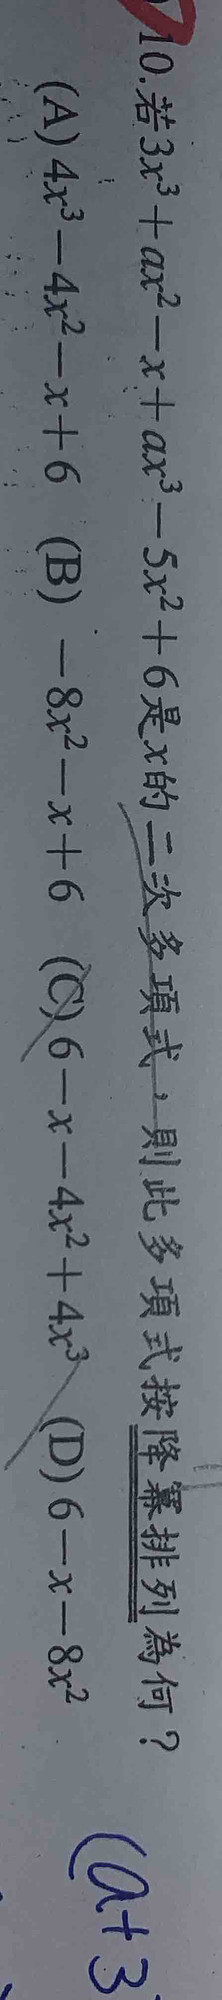 10.若3x³+ax²−x+ax³−5x²+6是x的二次多項式,則此多項式按降冪排列為何?
(A) 4x³−4x²−x+6 (B) −8x²−x+6 (C) 6−x−4x²+4x³ (D) 6−x−8x²
(a+3